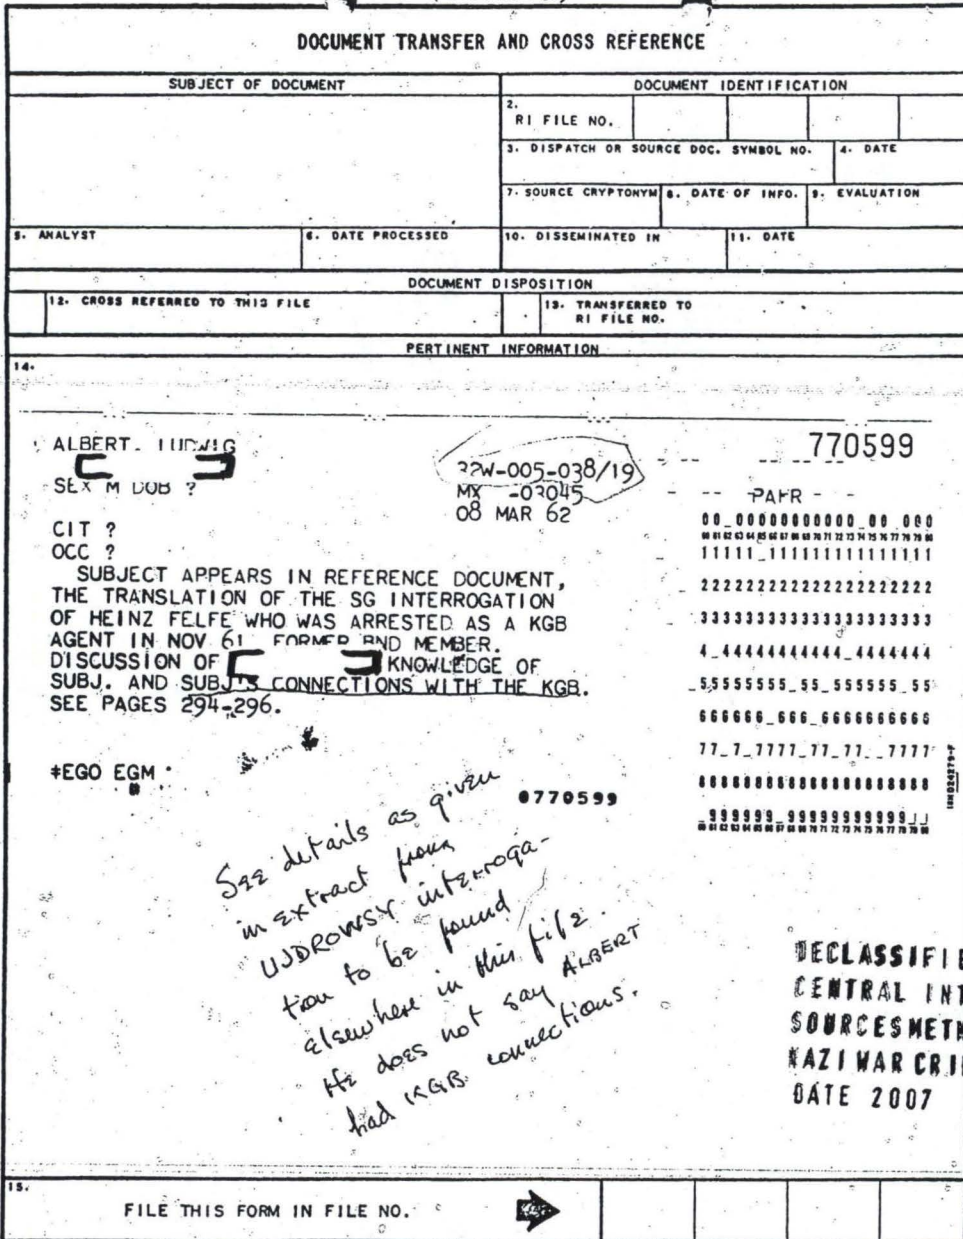 DOCUMENT TRANSFER AND CROSS REFERENCE
SUBJECT OF DOCUMENT
DOCUMENT IDENTIFICATION
2.
RI FILE NO.
3. DISPATCH OR SOURCE DOC. SYMBOL NO.
4. DATE
7. SOURCE CRYPTONYM
8. DATE OF INFO.
9. EVALUATION
5. ANALYST
6. DATE PROCESSED
10. DISSEMINATED IN
11. DATE
DOCUMENT DISPOSITION
12. CROSS REFERRED TO THIS FILE
13. TRANSFERRED TO
RI FILE NO.
PERTINENT INFORMATION
14.
ALBERT. LUDWIG
SEX M DOB ?
32W-005-038/19
MX -03045
08 MAR 62
770599
CIT ?
OCC ?
SUBJECT APPEARS IN REFERENCE DOCUMENT,
THE TRANSLATION OF THE SG INTERROGATION
OF HEINZ FELFE WHO WAS ARRESTED AS A KGB
AGENT IN NOV 61 FORMER BND MEMBER.
DISCUSSION OF KNOWLEDGE OF
SUBJ. AND SUBJ'S CONNECTIONS WITH THE KGB.
SEE PAGES 294-296.
*EGO EGM
0770599
PAPR
00_00000000000_00_000
11111_111111111111111
222222222222222222222
333333333333333333333
4_44444444444_4444444
_55555555_55_555555_55
666666_666_6666666666
77_7_7777_77_77__7777
888888888888888888888
_999999_99999999999
See details as given
in extract from
UJDROWSY interroga-
tion to be found
elsewhere in this file.
He does not say ALBERT
had KGB connections.
DECLASSIFIE
CENTRAL INT
SOURCESMETH
NAZI WAR CRI
DATE 2007
15.
FILE THIS FORM IN FILE NO.